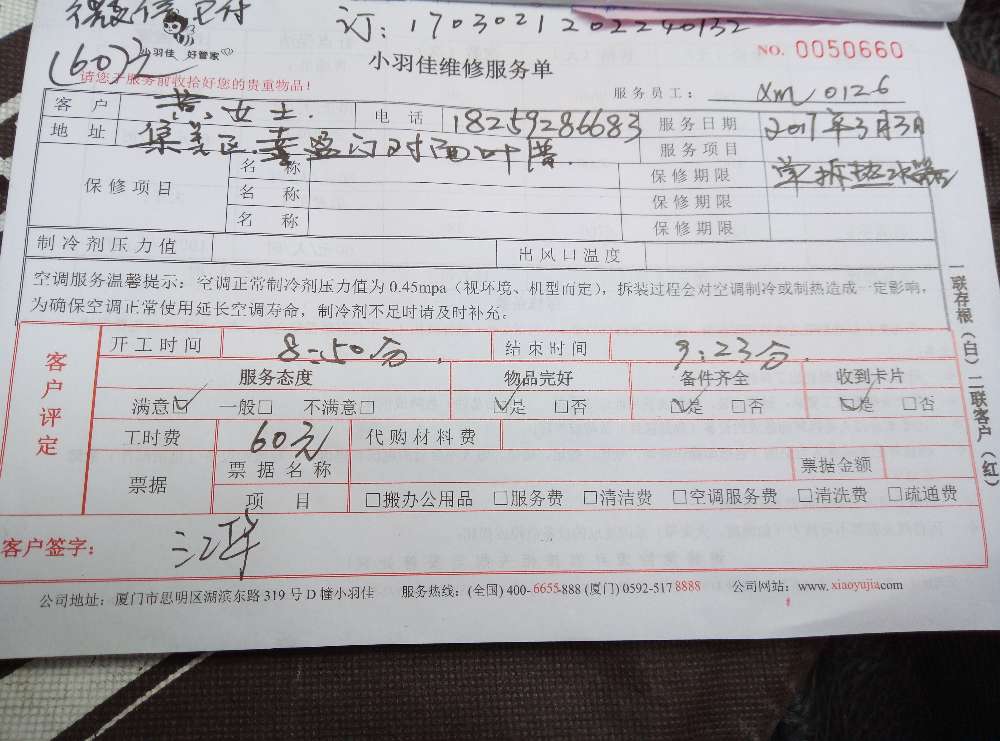 微信已付
订: 1703021202240132
(60)元
小羽佳 好管家
请您于服务前收拾好您的贵重物品!
小羽佳维修服务单
NO. 0050660
服务员工: xm 0126
客户 女士. 电话 18259286683 服务日期 2017年3月3日
地址 集美区 对面叶厝. 服务项目 单拆热水器
保修项目 名称 保修期限
名称 保修期限
名称 保修期限
制冷剂压力值 出风口温度
空调服务温馨提示: 空调正常制冷剂压力值为0.45mpa(视环境、机型而定), 拆装过程会对空调制冷或制热造成一定影响,
为确保空调正常使用延长空调寿命, 制冷剂不足时请及时补充。
客户评定
开工时间 8:50分. 结束时间 9:23分.
服务态度 物品完好 备件齐全 收到卡片
满意☑ 一般□ 不满意□ ☑是 □否 ☑是 □否 ☑是 □否
工时费 60元 代购材料费
票据 票据名称 票据金额
项目 □搬办公用品 □服务费 □清洁费 □空调服务费 □清洗费 □疏通费
客户签字: 江华
一联存根(白) 二联客户(红)
公司地址: 厦门市思明区湖滨东路319号D幢小羽佳 服务热线: (全国) 400-6655-888 (厦门) 0592-517 8888 公司网站: www.xiaoyujia.com